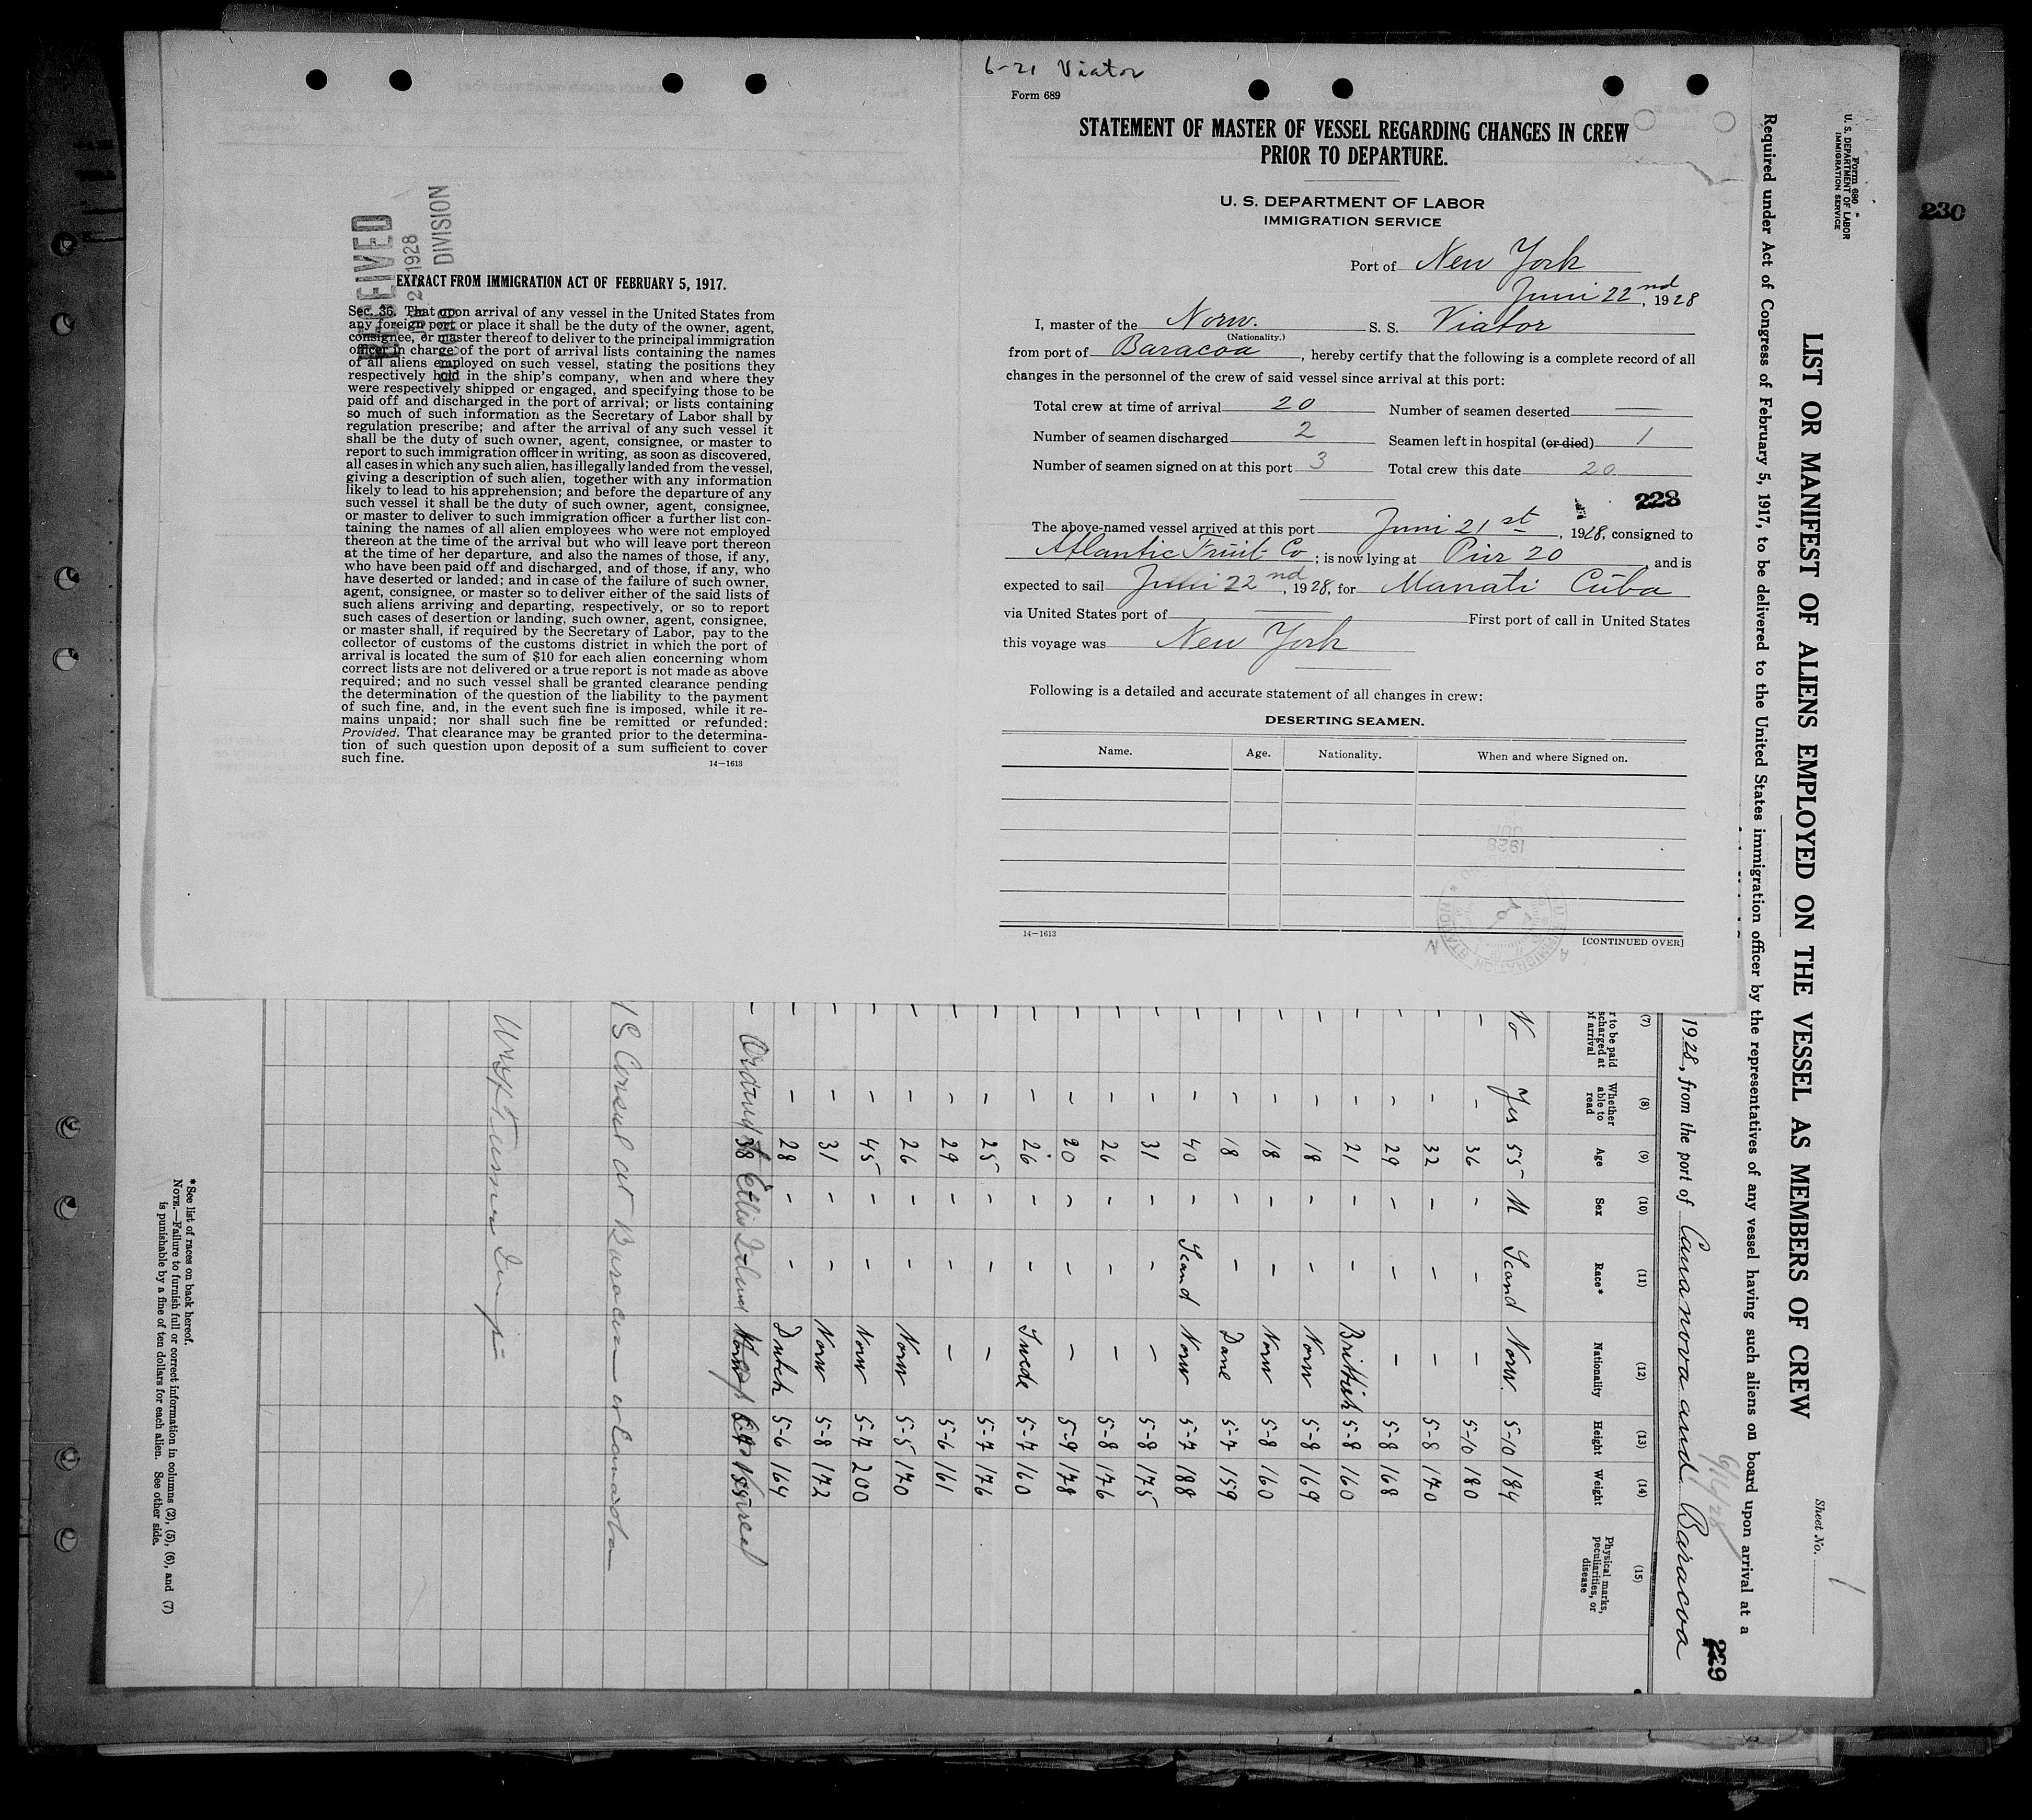 6-21 Viator
Form 689
STATEMENT OF MASTER OF VESSEL REGARDING CHANGES IN CREW
PRIOR TO DEPARTURE.
U. S. DEPARTMENT OF LABOR
IMMIGRATION SERVICE
Port of New York
Juni 22nd, 1928
I, master of the Norw. S. S. Viator
(Nationality.)
from port of Baracoa, hereby certify that the following is a complete record of all
changes in the personnel of the crew of said vessel since arrival at this port:
Total crew at time of arrival 20 Number of seamen deserted —
Number of seamen discharged 2 Seamen left in hospital (or died) 1
Number of seamen signed on at this port 3 Total crew this date 20
228
The above-named vessel arrived at this port Juni 21st, 1928, consigned to
Atlantic Fruit Co; is now lying at Pier 20, and is
expected to sail Juni 22nd, 1928, for Manati Cuba
via United States port of — First port of call in United States
this voyage was New York
Following is a detailed and accurate statement of all changes in crew:
DESERTING SEAMEN.
Name. Age. Nationality. When and where Signed on.
14—1613
[CONTINUED OVER]
RECEIVED
1928
DIVISION
EXTRACT FROM IMMIGRATION ACT OF FEBRUARY 5, 1917.
Sec. 36. That upon arrival of any vessel in the United States from
any foreign port or place it shall be the duty of the owner, agent,
consignee, or master thereof to deliver to the principal immigration
officer in charge of the port of arrival lists containing the names
of all aliens employed on such vessel, stating the positions they
respectively hold in the ship's company, when and where they
were respectively shipped or engaged, and specifying those to be
paid off and discharged in the port of arrival; or lists containing
so much of such information as the Secretary of Labor shall by
regulation prescribe; and after the arrival of any such vessel it
shall be the duty of such owner, agent, consignee, or master to
report to such immigration officer in writing, as soon as discovered,
all cases in which any such alien, has illegally landed from the vessel,
giving a description of such alien, together with any information
likely to lead to his apprehension; and before the departure of any
such vessel it shall be the duty of such owner, agent, consignee,
or master to deliver to such immigration officer a further list con-
taining the names of all alien employees who were not employed
thereon at the time of the arrival but who will leave port thereon
at the time of her departure, and also the names of those, if any,
who have been paid off and discharged, and of those, if any, who
have deserted or landed; and in case of the failure of such owner,
agent, consignee, or master so to deliver either of the said lists of
such aliens arriving and departing, respectively, or so to report
such cases of desertion or landing, such owner, agent, consignee,
or master shall, if required by the Secretary of Labor, pay to the
collector of customs of the customs district in which the port of
arrival is located the sum of $10 for each alien concerning whom
correct lists are not delivered or a true report is not made as above
required; and no such vessel shall be granted clearance pending
the determination of the question of the liability to the payment
of such fine, and, in the event such fine is imposed, while it re-
mains unpaid; nor shall such fine be remitted or refunded:
Provided, That clearance may be granted prior to the determina-
tion of such question upon deposit of a sum sufficient to cover
such fine.
14—1613
230
Form 680
U. S. DEPARTMENT OF LABOR
IMMIGRATION SERVICE
Sheet No. 1
LIST OR MANIFEST OF ALIENS EMPLOYED ON THE VESSEL AS MEMBERS OF CREW
Required under Act of Congress of February 5, 1917, to be delivered to the United States immigration officer by the representatives of any vessel having such aliens on board upon arrival at a
229
6/16/28
1928, from the port of Cananova and Baracoa
(7) (8) (9) (10) (11) (12) (13) (14) (15)
Whether able to read Age Sex Race* Nationality Height Weight Physical marks, peculiarities, or disease
No Yes 55 M Scand Norw. 5-10 184
- - 36 - - - 5-10 180
- - 32 - - - 5-8 170
- - 29 - - - 5-8 168
- - 21 - - Brittish 5-8 160
- - 18 - - Norw 5-8 169
- - 18 - - Norw 5-8 160
- - 18 - - Dane 5-7 159
- - 40 - Scand Norw 5-7 188
- - 31 - - - 5-8 175
- - 26 - - - 5-8 176
- - 20 - - - 5-9 178
- - 26 - - Swede 5-7 160
- - 25 - - - 5-7 176
- - 29 - - - 5-6 161
- - 26 - - Norw 5-5 170
- - 45 - - Norw 5-7 200
- - 31 - - Norw 5-8 172
- - 28 - - Dutch 5-6 164
Ellis Island
Consul at Baracoa
* See list of races on back hereof.
NOTE.—Failure to furnish full or correct information in columns (2), (5), (6), and (7)
is punishable by a fine of ten dollars for each alien. See other side.